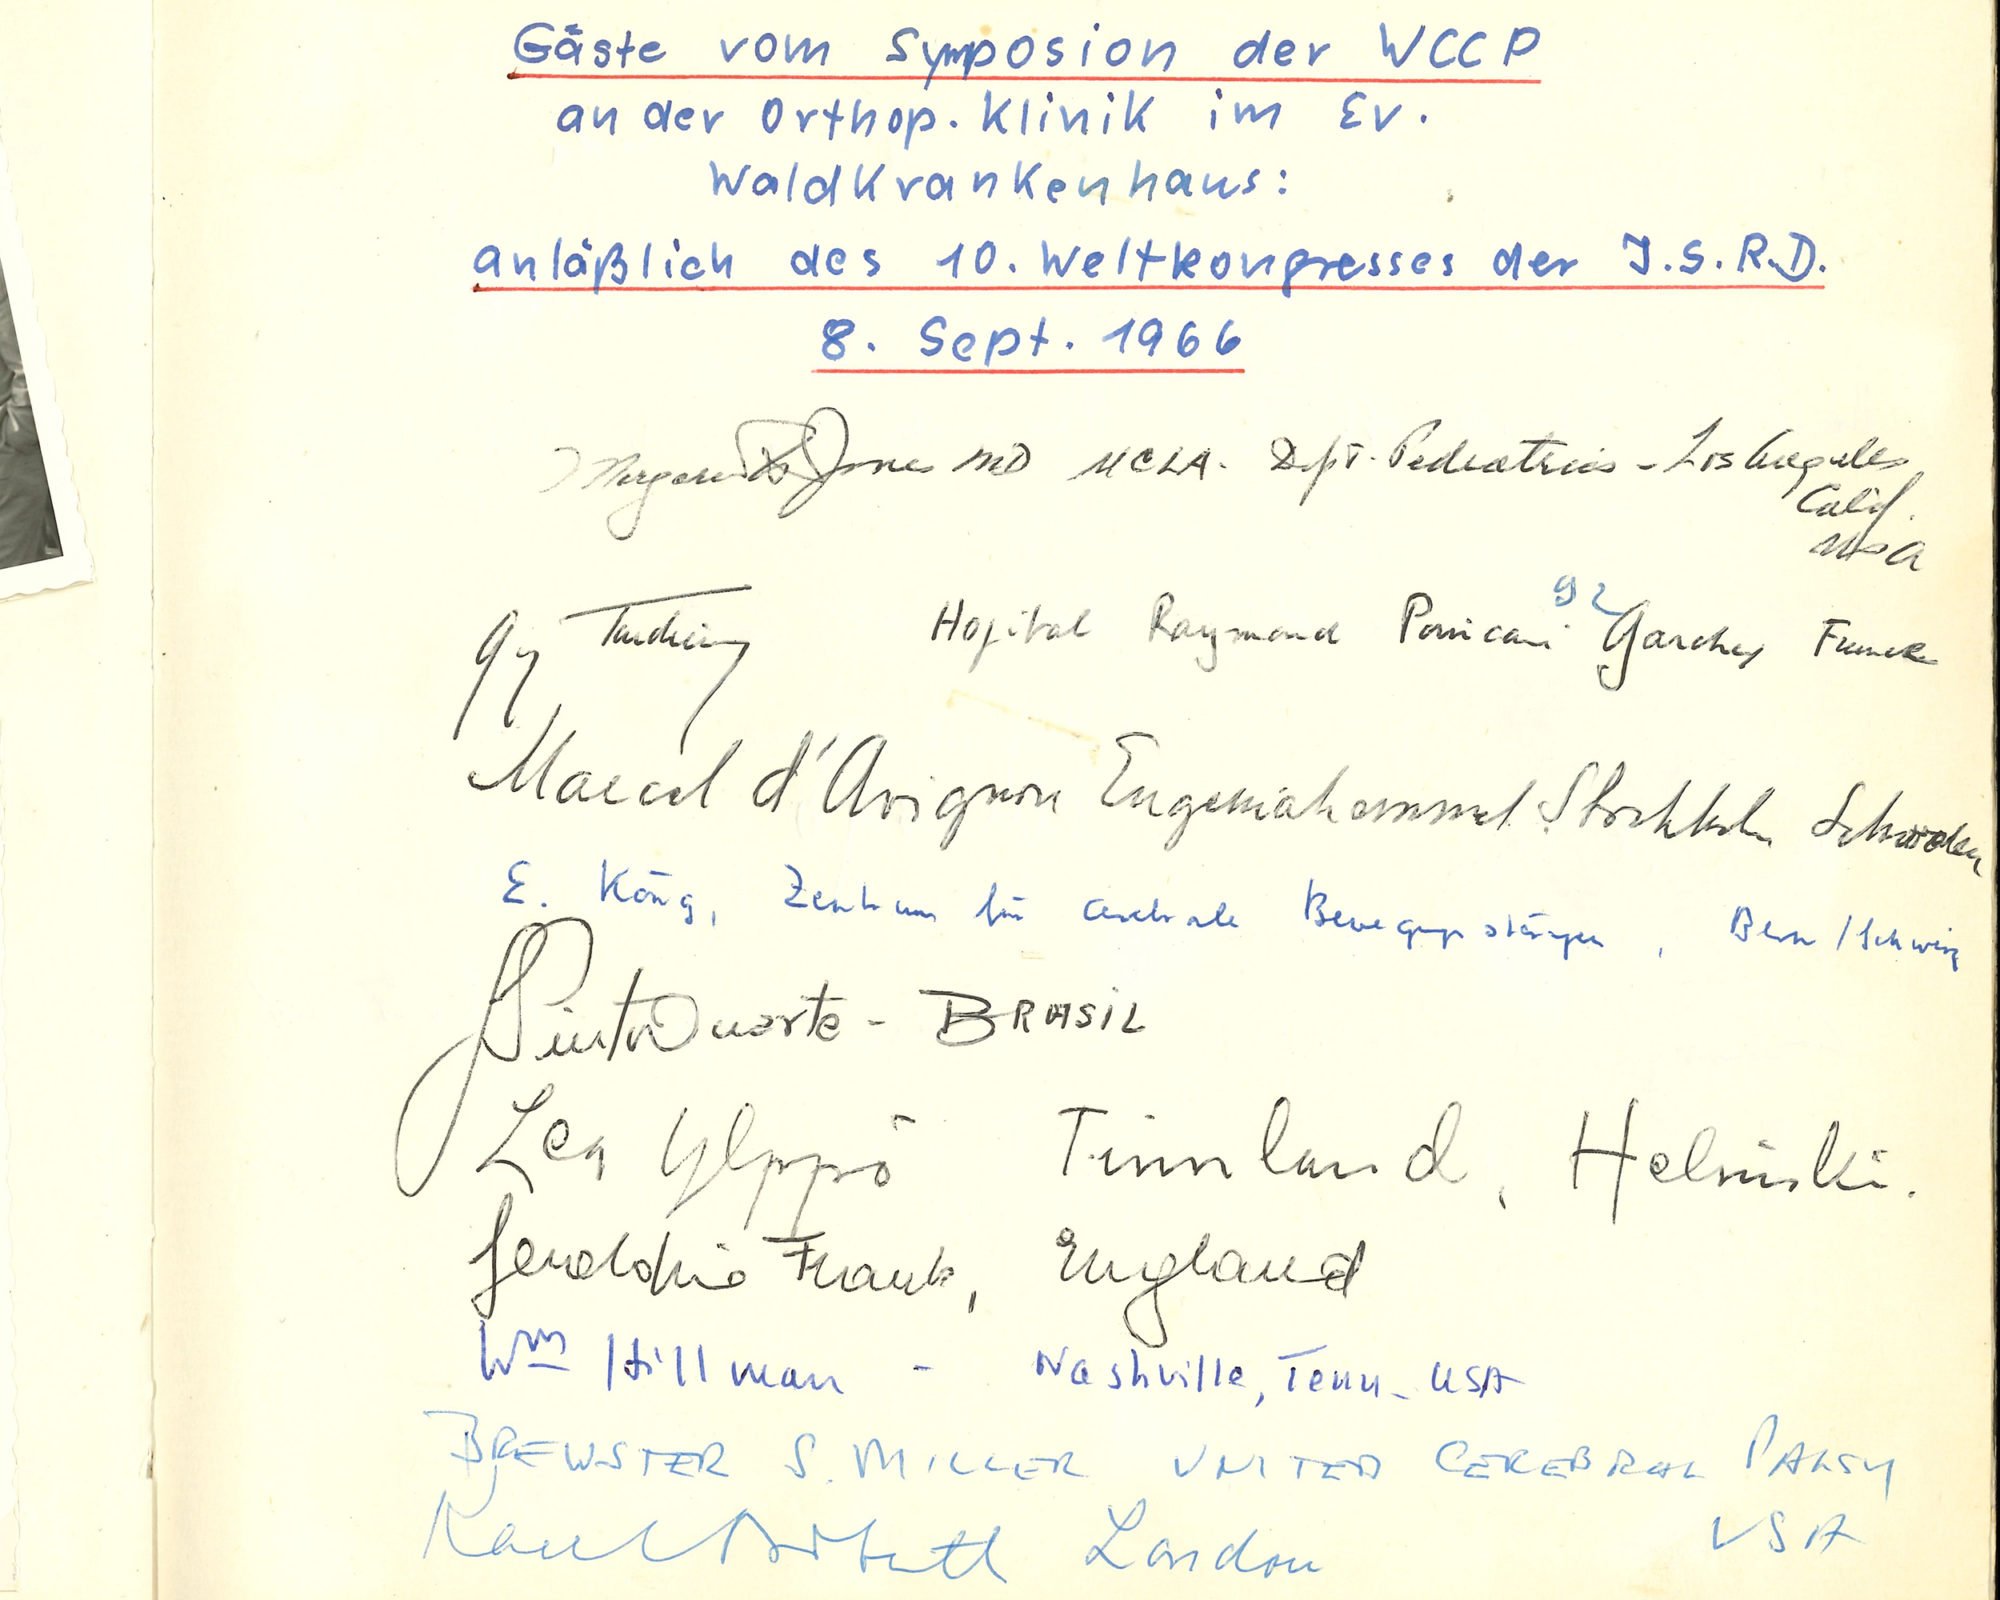 Gäste vom Symposion der WCCP
an der Orthop. Klinik im Ev.
Waldkrankenhaus:
anläßlich des 10. Weltkongresses der I.S.R.D.
8. Sept. 1966
Margaret Jones MD UCLA. Dept. Pediatrics - Los Angeles
Calif.
USA
92
gy Tardieu Hopital Raymond Poincaré Garches France
Marcel d'Avignon Eugeniahemmet Stockholm Schweden
E. König, Zentrum für cerebrale Bewegungsstörungen, Bern / Schweiz
Pinto Duarte - BRASIL
Lea Ylppö Finnland, Helsinki.
Geraldine Frank, England
Wm Hillman - Nashville, Tenn - USA
BREWSTER S. MILLER UNITED CEREBRAL PALSY
USA
Karel Bobath London